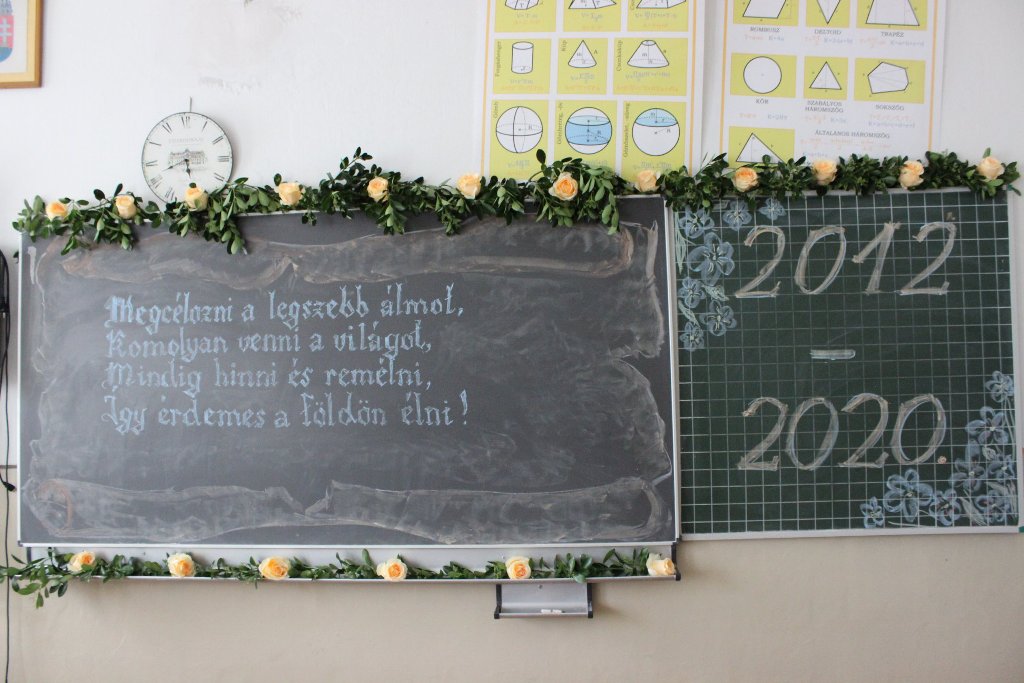 Megcélozni a legszebb álmot,
Komolyan venni a világot,
Mindig hinni és remélni,
Így érdemes a földön élni!
2012
-
2020.
Forgáshenger
Kúp
Csonkakúp
Gömb
ROMBUSZ
DELTOID
TRAPÉZ
KÖR
SZABÁLYOS
HÁROMSZÖG
SOKSZÖG
ÁLTALÁNOS HÁROMSZÖG